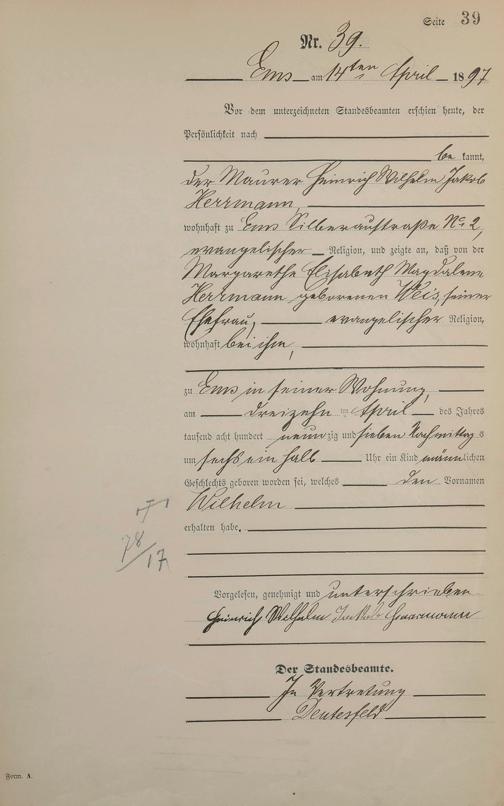 Seite 39
Nr. 39.
Ems am 14ten April 1897
Vor dem unterzeichneten Standesbeamten erschien heute, der
Persönlichkeit nach
be kannt,
der Maurer Heinrich Wilhelm Jakob
Herrmann,
wohnhaft zu Ems Silberaustraße No 2,
evangelischer Religion, und zeigte an, daß von der
Margarethe Elisabeth Magdalene
Herrmann geborenen Weis, seiner
Ehefrau, evangelischer Religion,
wohnhaft bei ihm,
zu Ems in seiner Wohnung,
am dreizehn ten April des Jahres
tausend acht hundert neun zig und sieben Nachmittags
um sechs ein halb Uhr ein Kind männlichen
Geschlechts geboren worden sei, welches den Vornamen
Wilhelm
erhalten habe.
78/17
Vorgelesen, genehmigt und unterschrieben
Heinrich Wilhelm Jakob Herrmann
Der Standesbeamte.
In Vertretung
Form. A.